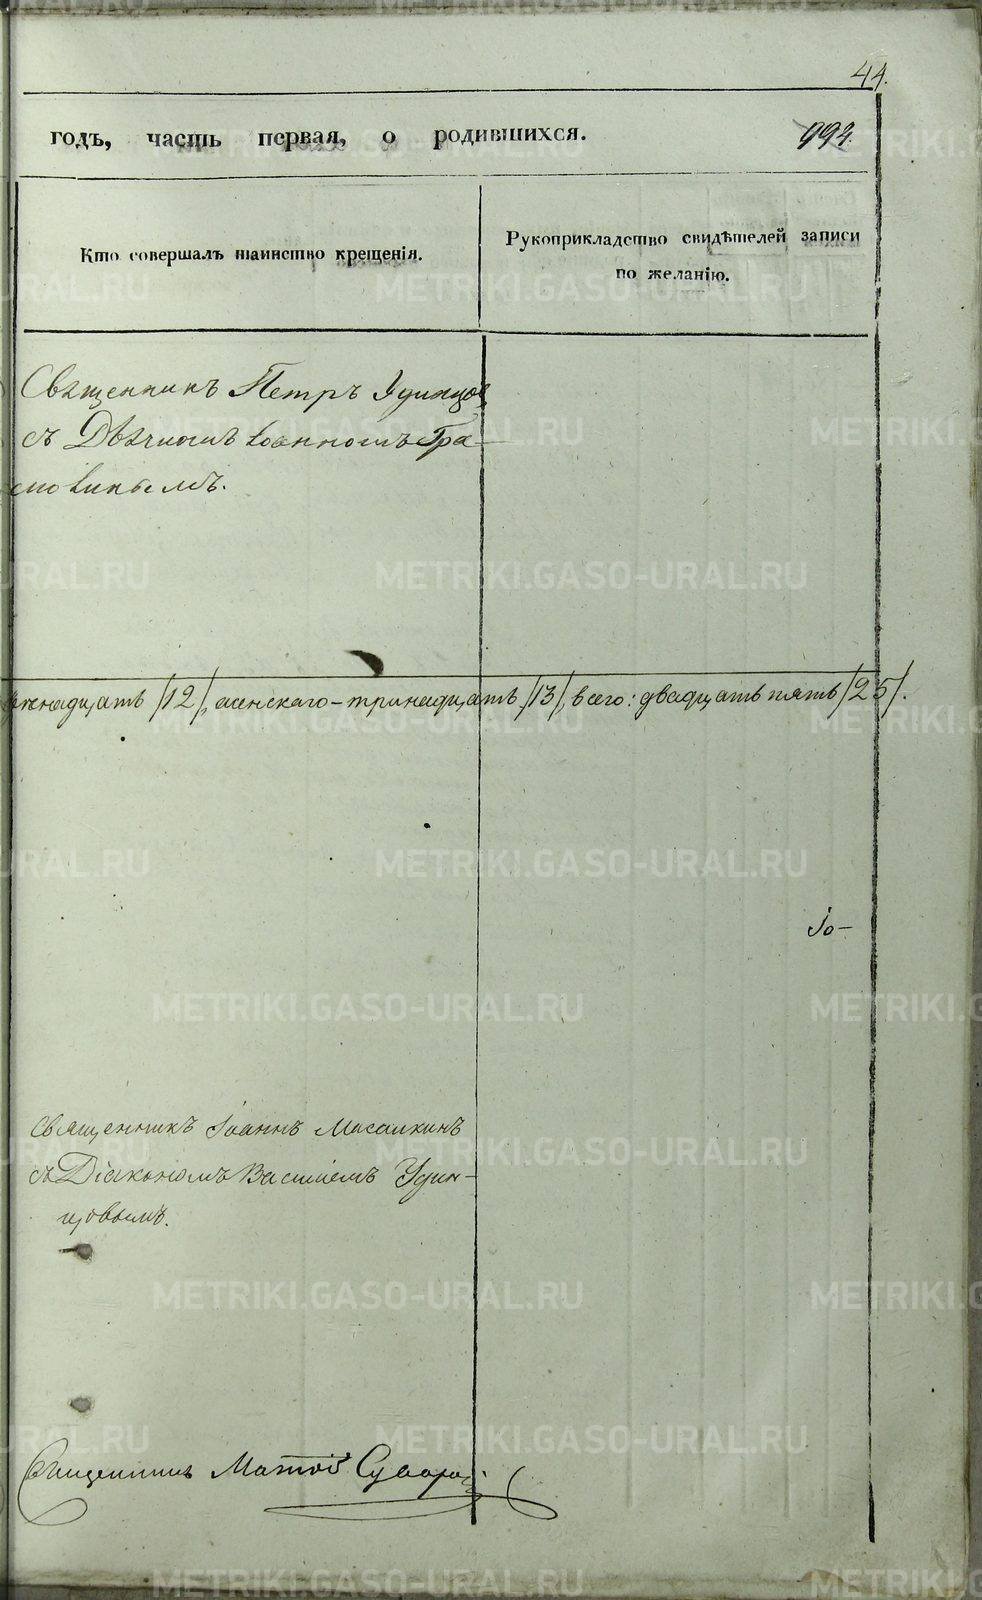 44.
годъ, часть первая, о родившихся. 994.
Кто совершалъ таинство крещенія.
Рукоприкладство свидѣтелей записи
по желанію.
Священникъ Петръ Удинцов
съ Дьячкомъ Іоанномъ Гра-
мовикымъ.
женадцать /12/, женскаго - тринадцать /13/, всего: двадцать пять /25/.
Іо-
Священникъ Іоаннъ Масалкинъ
съ Діакономъ Василіемъ Удин-
цовымъ.
Священникъ Матвій Сувора
METRIKI.GASO-URAL.RU